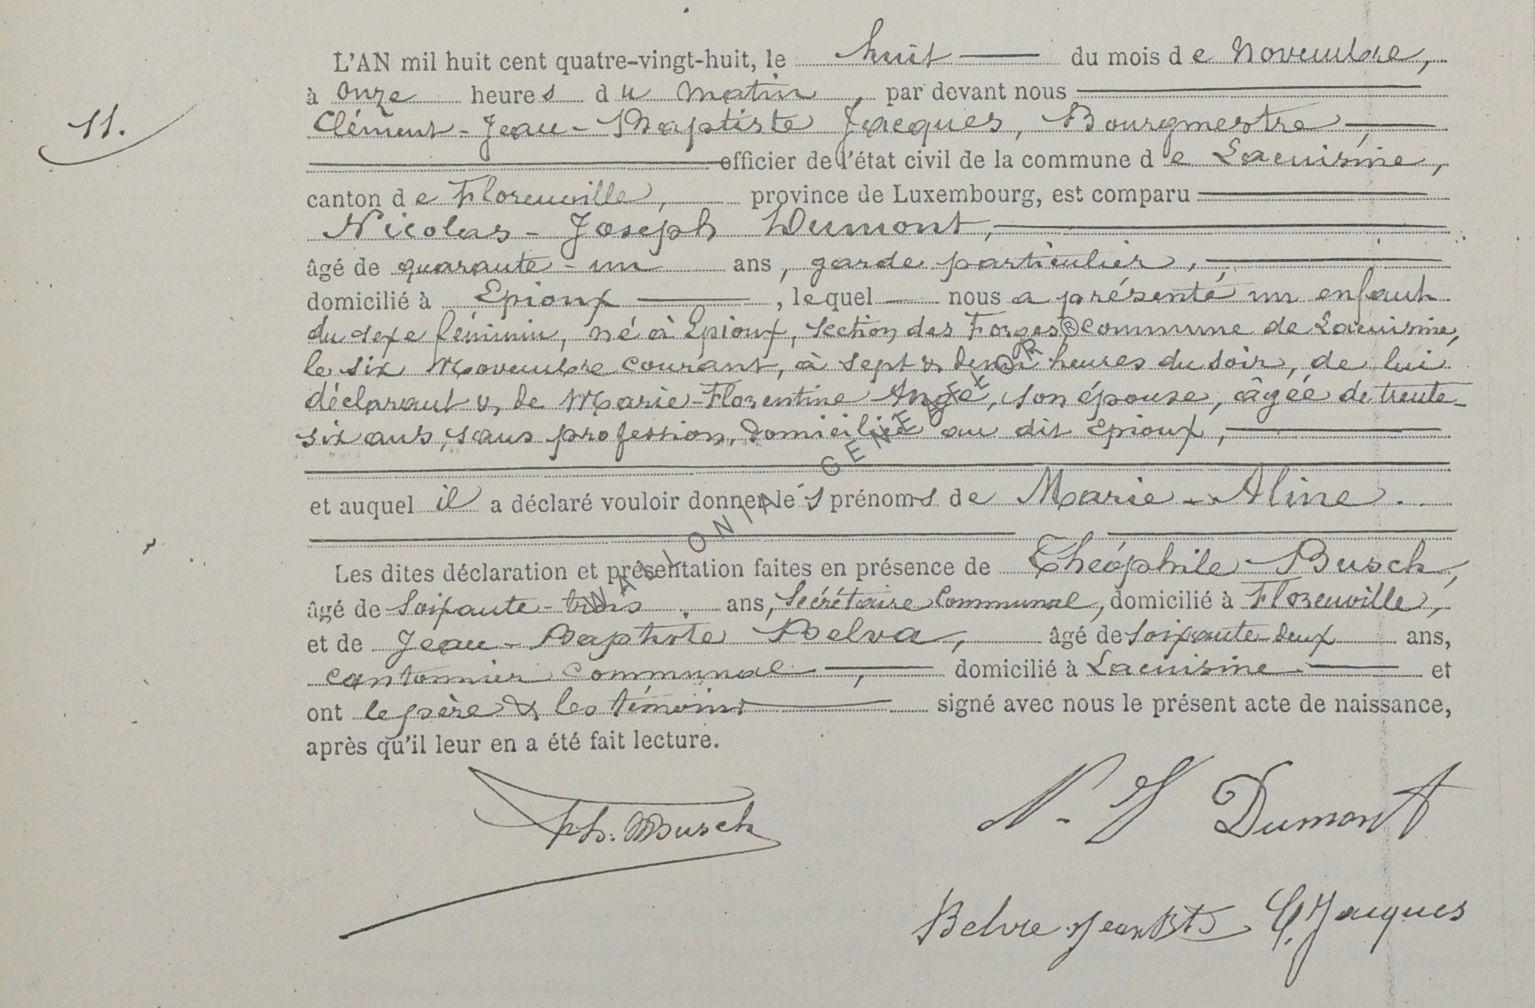 L'AN mil huit cent quatre-vingt-huit, le huit du mois de Novembre,
11.
à onze heures du matin, par devant nous
Clément-Jean-Baptiste Jacques, Bourgmestre,
officier de l'état civil de la commune de Lacuisine,
canton de Florenville, province de Luxembourg, est comparu
Nicolas-Joseph Dumont,
âgé de quarante-un ans, garde particulier,
domicilié à Epioux, lequel nous a présenté un enfant
du sexe féminin, né à Epioux, section des Forges, commune de Lacuisine,
le six Novembre courant, à sept & demi heures du soir, de lui
déclarant & de Marie-Florentine Angé, son épouse, âgée de trente-
six ans, sans profession, domiciliée au dit Epioux,
et auquel il a déclaré vouloir donner les prénoms de Marie-Aline.
Les dites déclaration et présentation faites en présence de Théophile Busch,
âgé de soixante-trois ans, Secrétaire Communal, domicilié à Florenville,
et de Jean-Baptiste Belva, âgé de soixante-deux ans,
cantonnier communal, domicilié à Lacuisine et
ont le père & les témoins signé avec nous le présent acte de naissance,
après qu'il leur en a été fait lecture.
Th. Busch
N.-J Dumont
Belva Jean Bte C. Jacques
WALLONIA GENEAFEDOR ®